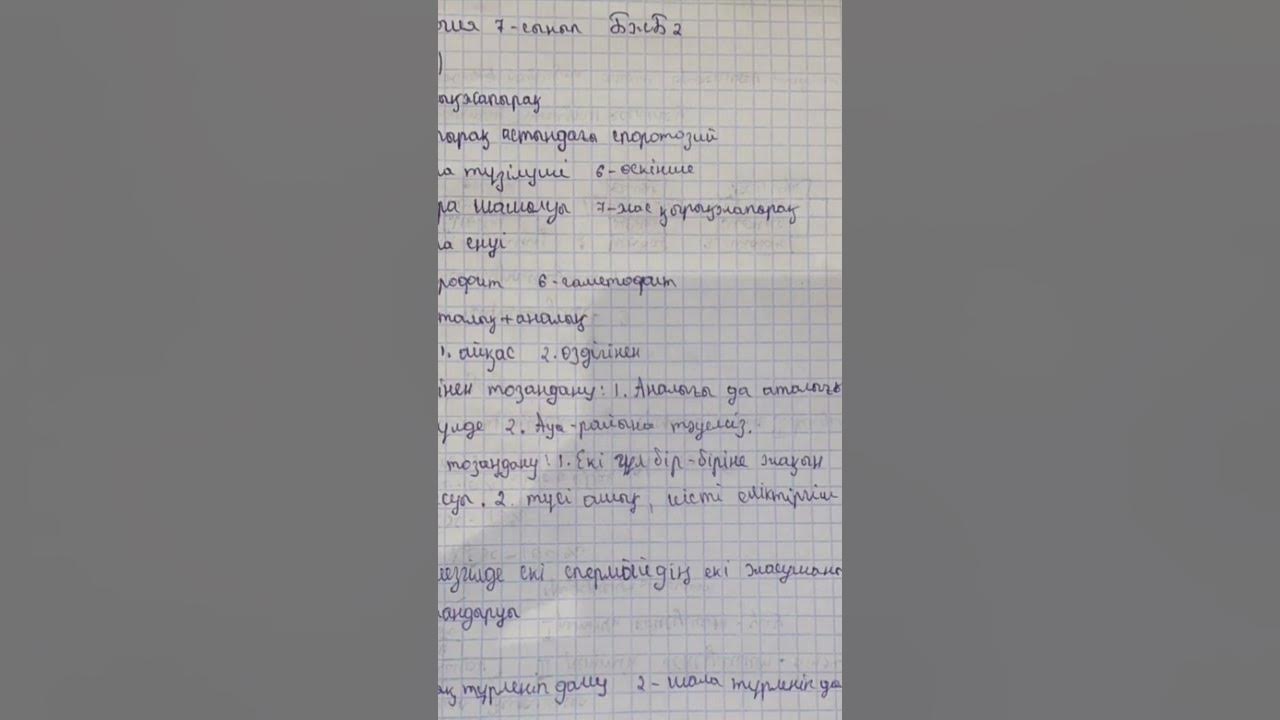 гия 7-сынып БжБ 2
)
ыңжапырақ
пырақ астындағы споротозий
а түзілуші 6-өскінше
ра шашылуы 7-жас қырыққлапырақ
а енуі
рофит 6-гаметофит
талық+аналық
1. айқас 2. өздігінен
інен тозаңдану: 1. Аналығы да аталығы
үлде 2. Ауа-райына тәуелсіз.
тозаңдану: 1. Екі гүл бір-біріне жақын
суы. 2. түсі ашық, иісті еліктіргіш
мезгілде екі спермийдің екі жасушаны
андыруы
ық түрленіп даму 2-шала түрленіп да